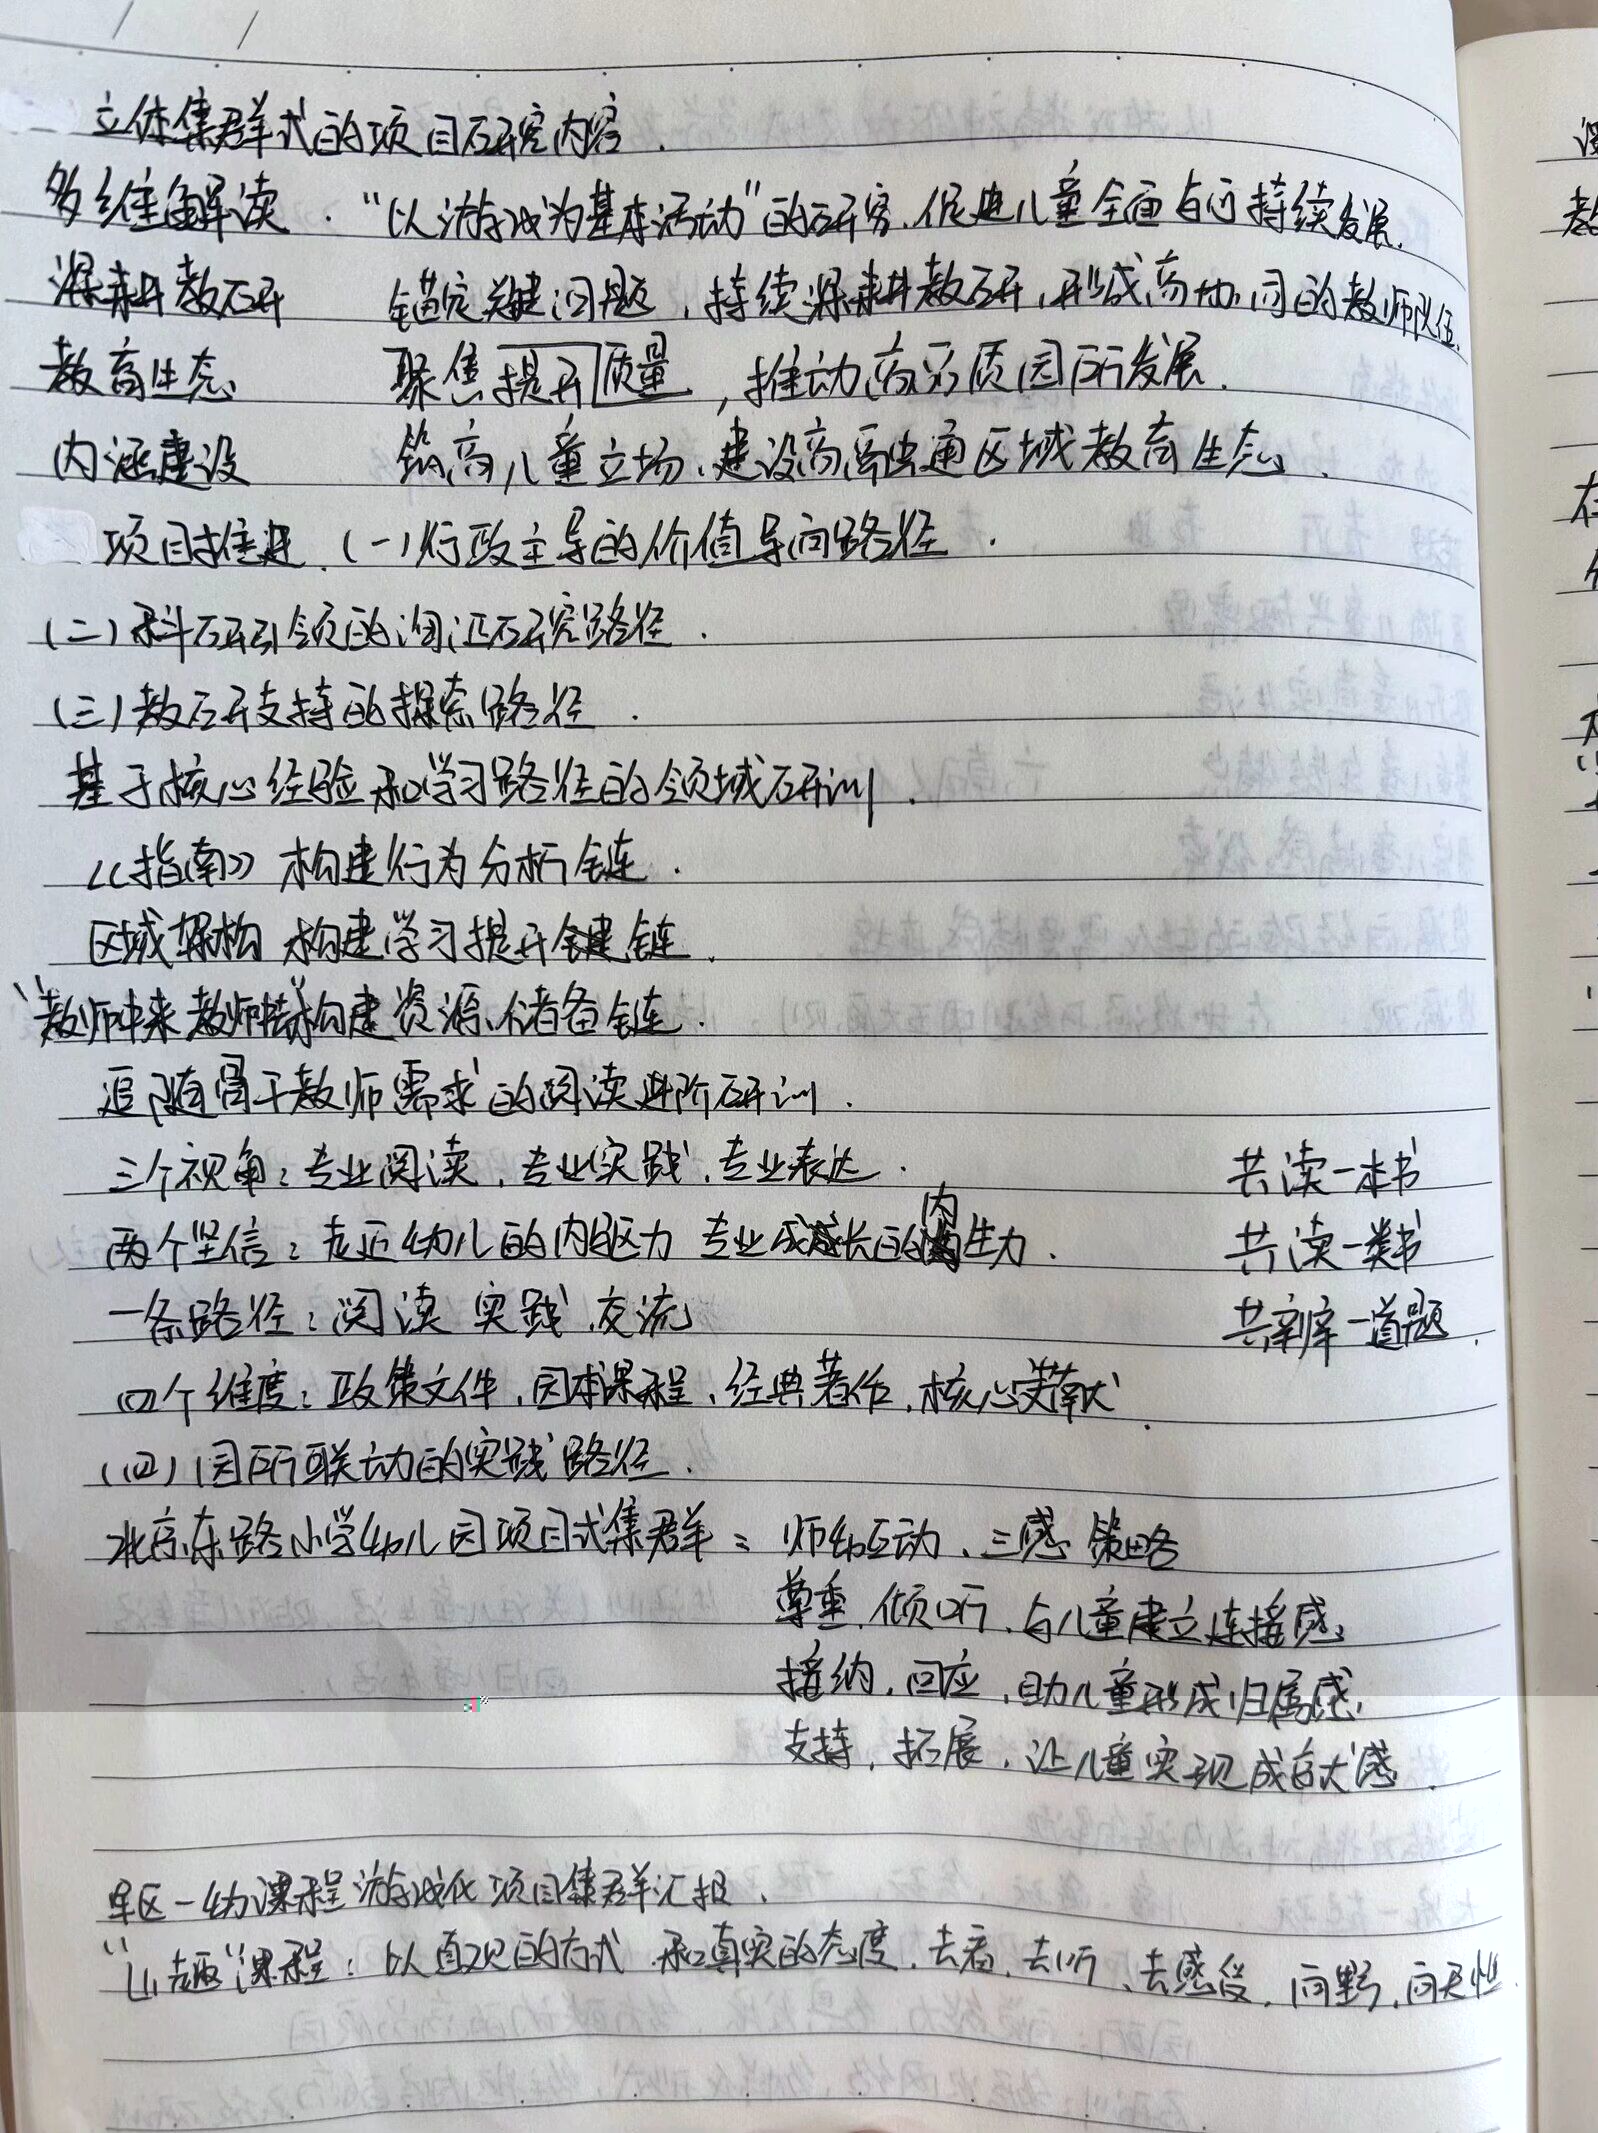 立体集群式的项目研究内容.
多维解读. “以游戏为基本活动”的研究.促进儿童全面与可持续发展.
深耕教研 锚定关键问题,持续深耕教研,形成高协同的教师队伍.
教育生态 聚焦提升质量,推动高品质园所发展.
内涵建设 筑高儿童立场.建设高高贯通区域教育生态.
项目推进.(一)行政主导的价值导向路径.
(二)科研引领的询证研究路径.
(三)教研支持的探索路径.
基于核心经验和学习路径的领域研训.
《指南》构建行为分析链.
区域架构 构建学习提升链.
“教师中来 教师中去”构建资源储备链.
追随骨干教师需求的阅读进阶研训.
三个视角:专业阅读.专业实践.专业表达. 共读一本书
两个坚信:走近幼儿的内驱力 专业成长的内生力. 共读一类书
一条路径:阅读 实践 交流 共一道题.
四个维度:政策文件.园本课程.经典著作.核心文献
(四)园所联动的实践路径.
北京东路小学幼儿园项目式集群: 师幼互动.三感策略
尊重.倾听.与儿童建立连接感.
接纳.回应.助儿童形成归属感.
支持.拓展.让儿童实现成就感.
军区一幼课程游戏化项目集群汇报.
“山趣”课程:以直观的方式 和真实的态度.去看.去听.去感受.向野.向天性.
设
教
在